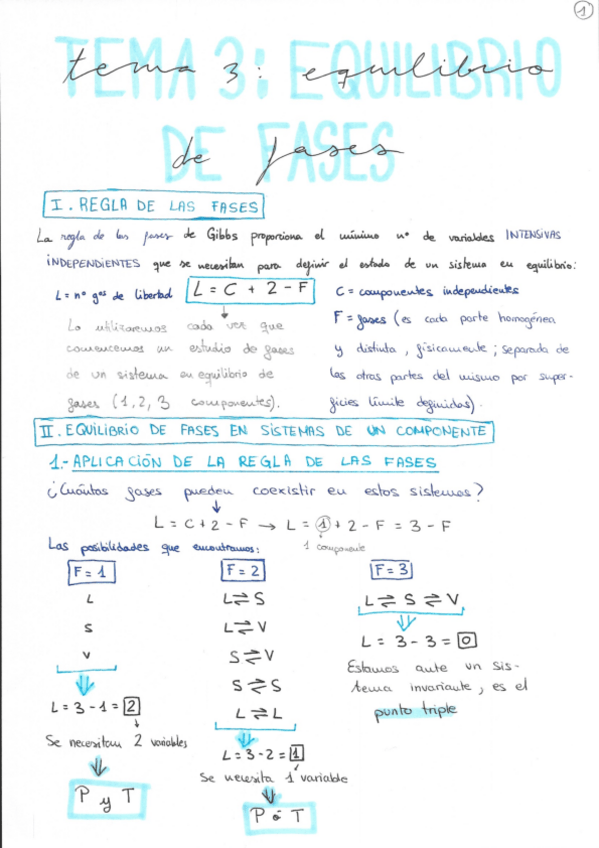 1
TEMA 3: EQUILIBRIO
tema 3: equilibrio
DE FASES
de fases
I. REGLA DE LAS FASES
La regla de las fases de Gibbs proporciona el mínimo nº de variables INTENSIVAS
INDEPENDIENTES que se necesitan para definir el estado de un sistema en equilibrio:
L = nº gᵒˢ de libertad
L = C + 2 - F
C = componentes independientes
Lo utilizaremos cada vez que
comencemos un estudio de fases
de un sistema en equilibrio de
fases (1, 2, 3 componentes).
F = fases (es cada parte homogénea
y distinta, físicamente; separada de
las otras partes del mismo por super-
ficies límite definidas).
II. EQUILIBRIO DE FASES EN SISTEMAS DE UN COMPONENTE
1.- APLICACIÓN DE LA REGLA DE LAS FASES
¿Cuántas fases pueden coexistir en estos sistemas?
L = C + 2 - F → L = 1 + 2 - F = 3 - F
1 componente
Las posibilidades que encontramos:
F = 1
L
S
V
L = 3 - 1 = 2
Se necesitan 2 variables
P y T
F = 2
L ⇌ S
L ⇌ V
S ⇌ V
S ⇌ S
L ⇌ L
L = 3 - 2 = 1
Se necesita 1 variable
P ó T
F = 3
L ⇌ S ⇌ V
L = 3 - 3 = 0
Estamos ante un sis-
tema invariante, es el
punto triple